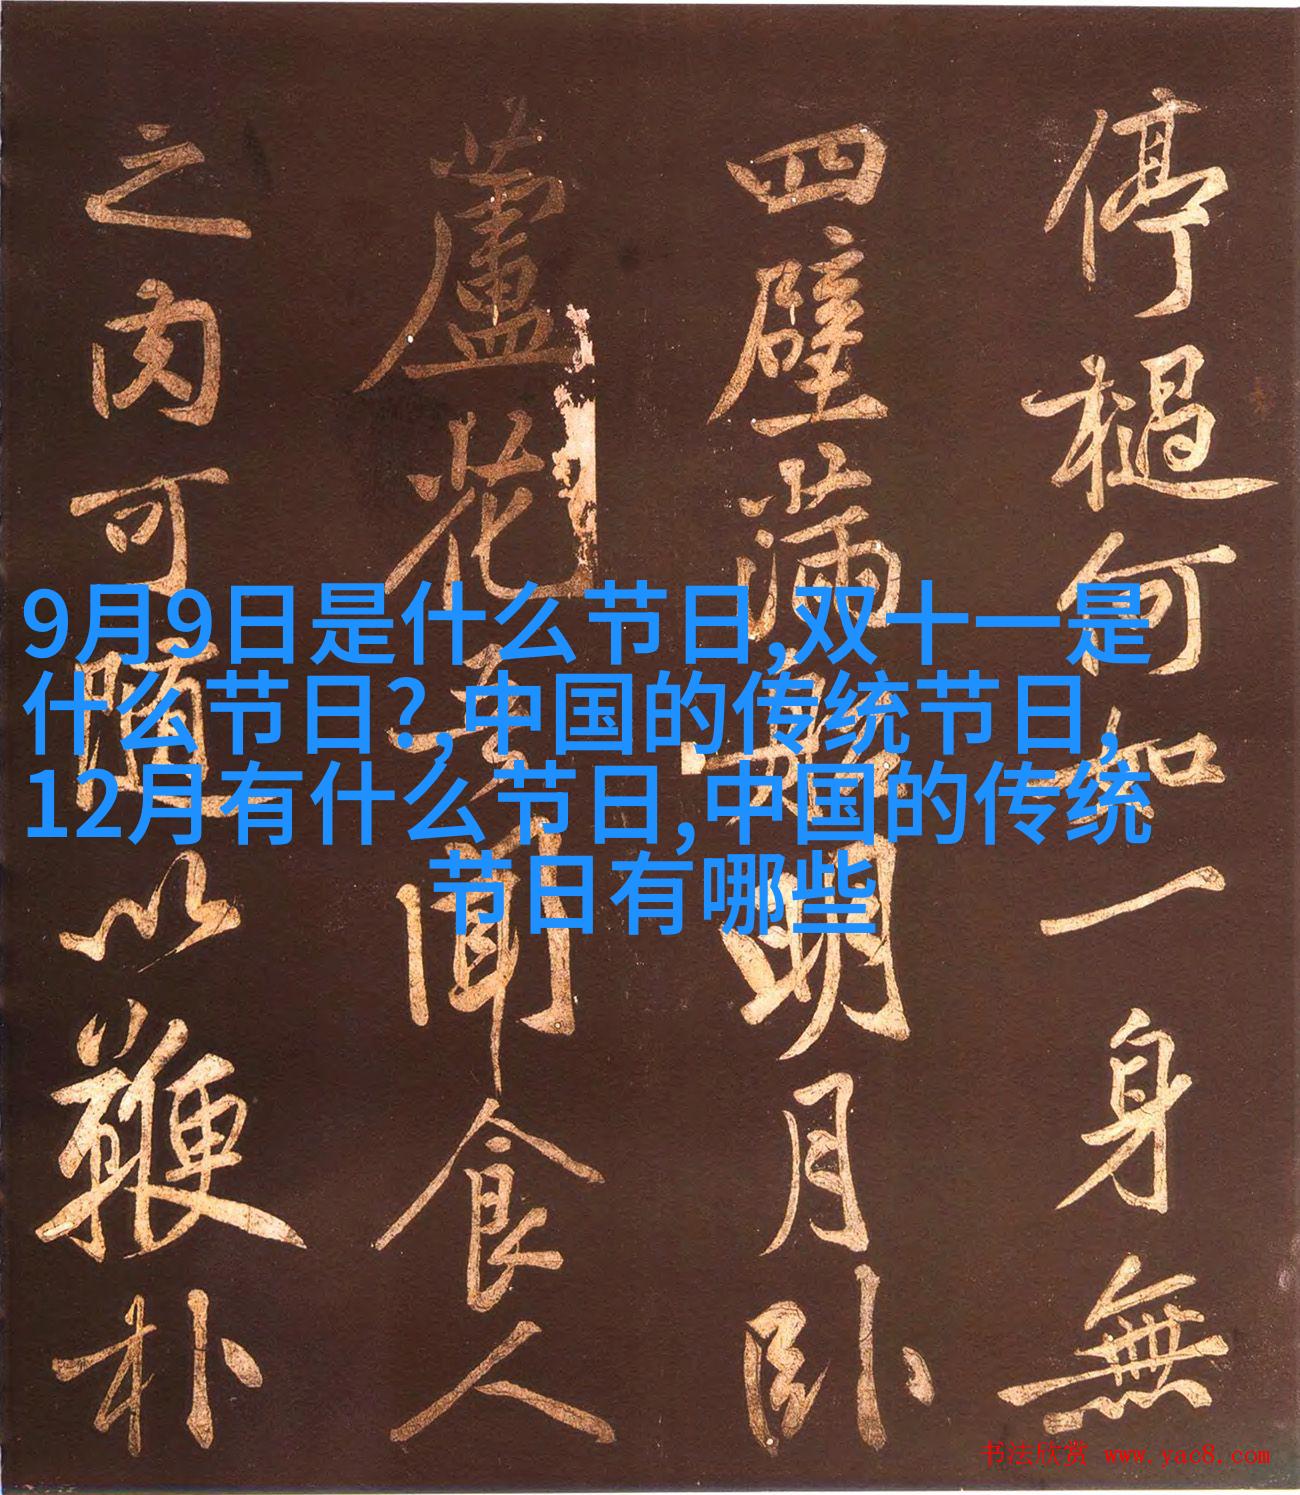 停檛何如一身無
四壁滿船明月臥
蘆花吾聞食人
之肉可隨以鞭朴
9月9日是什么节日,双十一是
什么节日?,中国的传统节日,
12月有什么节日,中国的传统
节日有哪些
书法欣赏 www.yac8.com